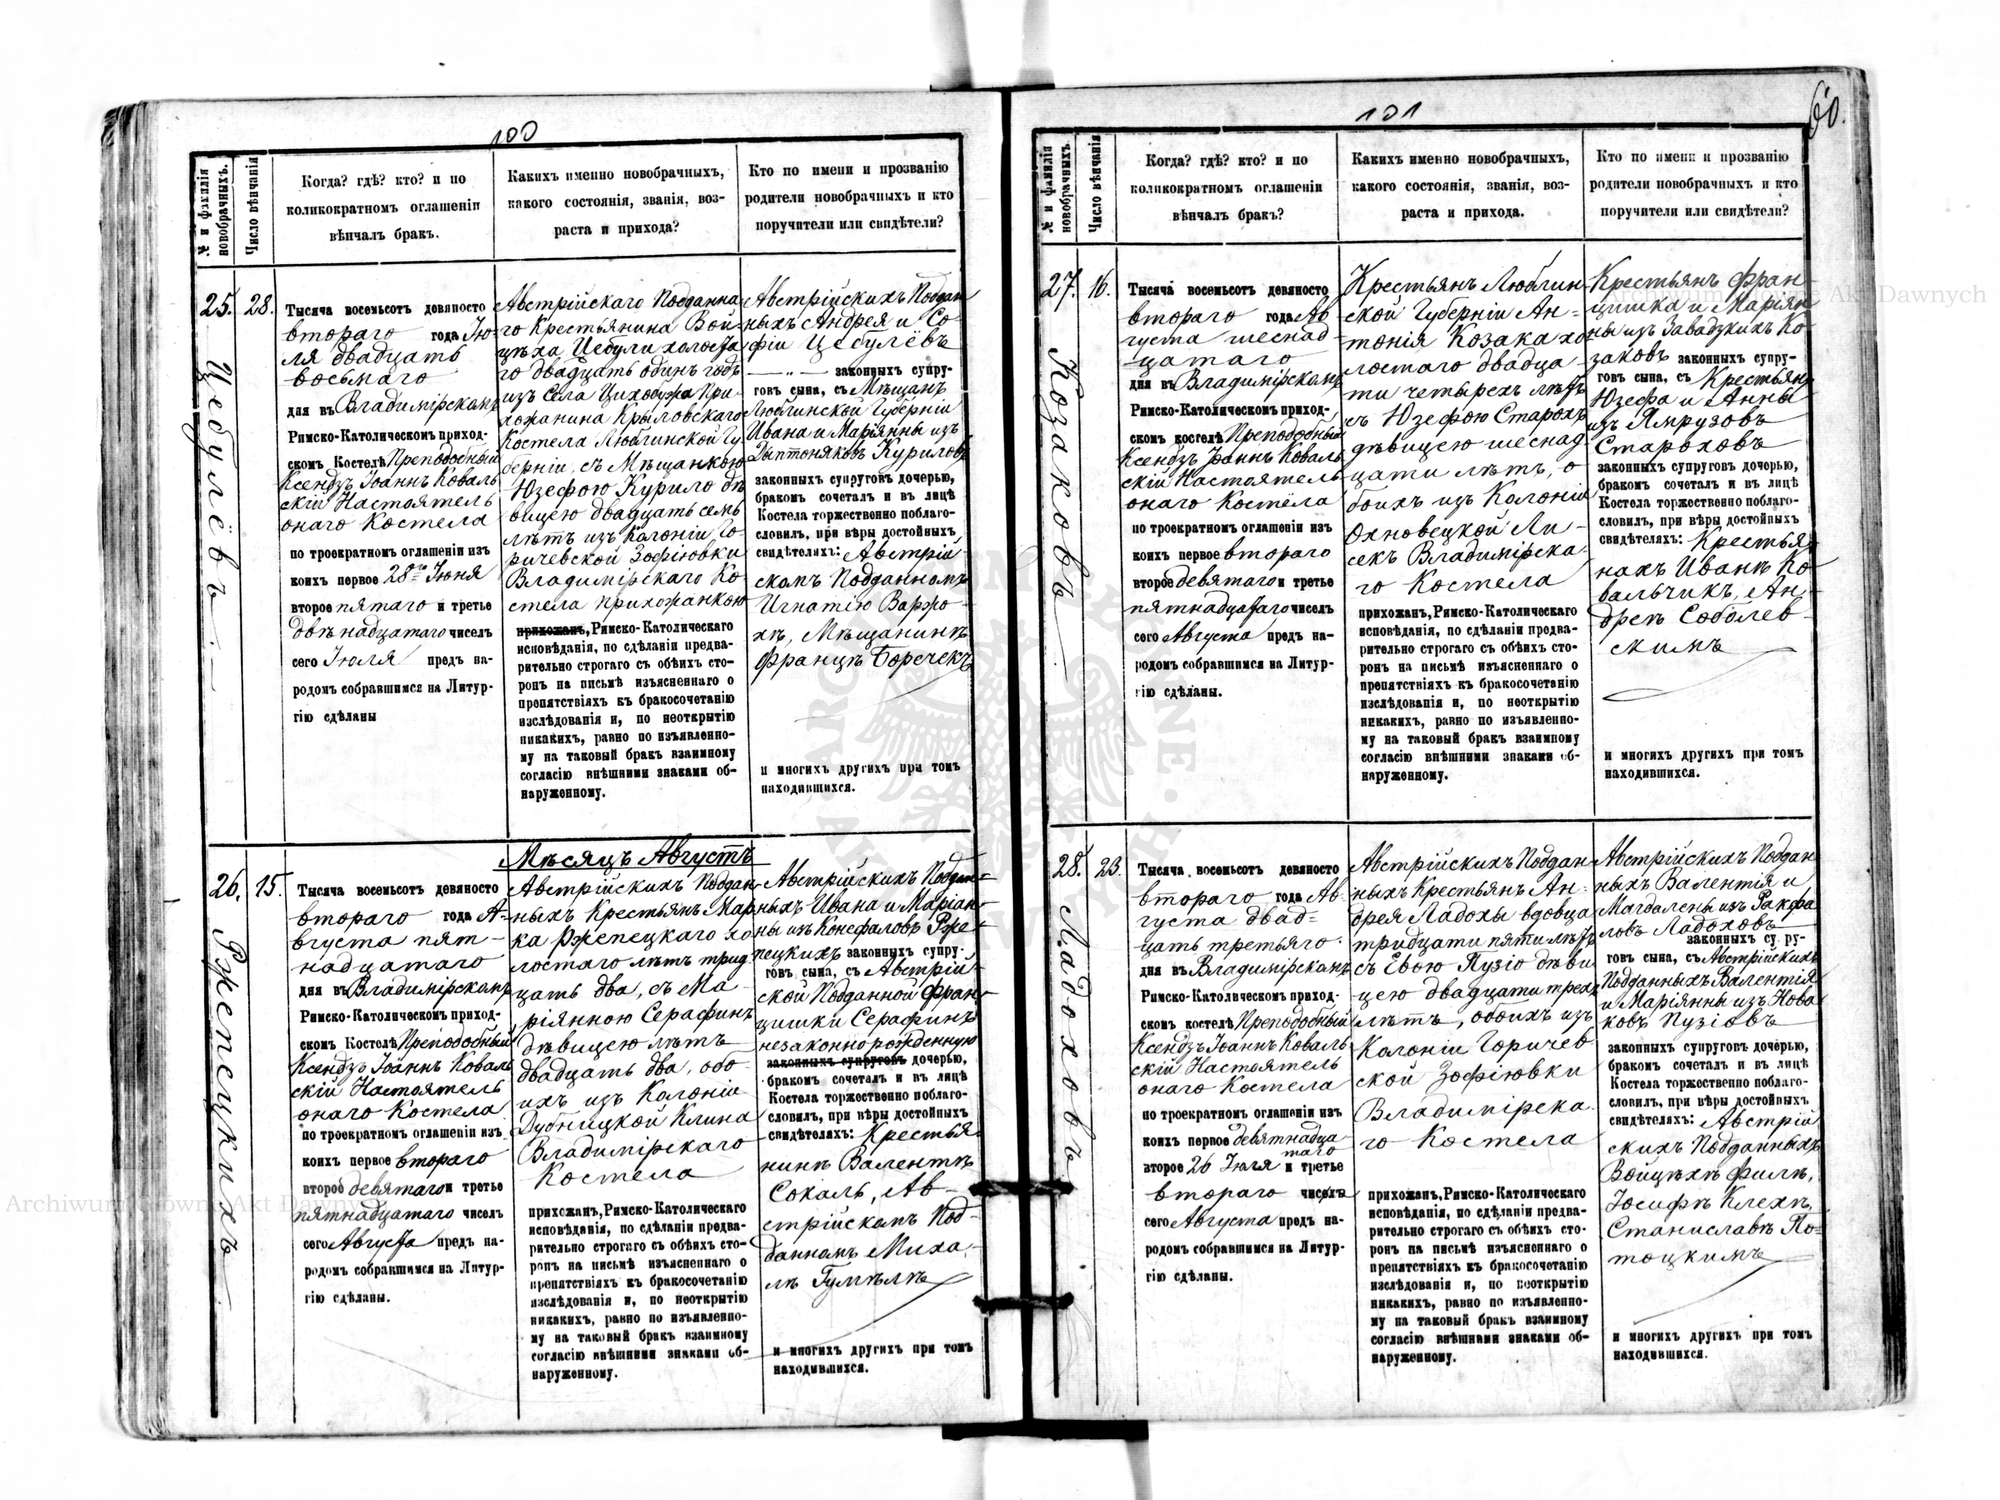 100
№ и фамилія новобрачныхъ.
Число вѣнчанія
Когда? гдѣ? кто? и по
коликократномъ оглашеніи
вѣнчалъ бракъ.
Какихъ именно новобрачныхъ,
какого состоянія, званія, воз-
раста и прихода?
Кто по имени и прозванію
родители новобрачныхъ и кто
поручители или свидѣтели?
25.
Цебулёвъ
28.
Тысяча восемьсот девяносто
втораго года Ію-
ля двадцать
восьмаго
дня въ Владимірскомъ
Римско-Католическомъ приход-
скомъ Костелѣ Преподобный
Ксендзъ Іоаннъ Коваль
скій Настоятель
онаго Костела
по троекратномъ оглашеніи изъ
коихъ первое 28го Іюня
второе пятаго и третье
двѣнадцатаго чиселъ
сего Іюля предъ на-
родомъ собравшимся на Литур-
гію сдѣланы
Австрійскаго Подданна
го Крестьянина Вой-
цѣха Цебули холоста
го двадцать одинъ годъ
изъ села Цихобужа При-
хожанина Крыловскаго
Костела Люблинской Гу
берніи, съ Мѣщанкою
Юзефою Курило дѣ
вицею двадцать семь
лѣтъ изъ Колоніи Го-
ричевской Зофіювки
Владимірскаго Ко
стела прихожанкою
прихожанъ, Римско-Католическаго
исповѣданія, по сдѣланіи предва-
рительно строгаго съ обѣихъ сто-
ронъ на письмѣ изъясненнаго о
препятствіяхъ къ бракосочетанію
изслѣдованія и, по неоткрытію
никакихъ, равно по изъявленно-
му на таковый бракъ взаимному
согласію внѣшними знаками об-
наруженному.
Австрійскихъ Поддан
ныхъ Андрея и Со
фіи Цебулёвъ
законныхъ супру-
говъ сына, съ Мѣщан
Люблинской Губерніи
Ивана и Маріянны изъ
Куриловъ
законныхъ супруговъ дочерью,
бракомъ сочеталъ и въ лицѣ
Костела торжественно поблаго-
словилъ, при вѣры достойныхъ
свидѣтеляхъ: Австрій
скомъ Подданномъ
Игнатію Варжо-
хѣ, Мѣщанинѣ
Францѣ Боречекъ
и многихъ другихъ при томъ
находившихся.
Мѣсяцъ Августъ
26.
Ржепецкихъ
15.
Тысяча восемьсот девяносто
втораго года А-
вгуста пят-
надцатаго
дня въ Владимірскомъ
Римско-Католическомъ приход-
скомъ Костелѣ Преподобный
Ксендзъ Іоаннъ Коваль
скій Настоятель
онаго Костела
по троекратномъ оглашеніи изъ
коихъ первое втораго
второе девятаго и третье
пятнадцатаго чиселъ
сего Августа предъ на-
родомъ собравшимся на Литур-
гію сдѣланы.
Австрійскихъ Поддан-
ныхъ Крестьянъ Мар
ка Ржепецкаго хо
лостаго лѣтъ трид
цать два, съ Ма-
ріянною Серафинъ
дѣвицею лѣтъ
двадцать два, обо-
ихъ изъ Колоніи
Дубницкой Клина
Владимірскаго
Костела
прихожанъ, Римско-Католическаго
исповѣданія, по сдѣланіи предва-
рительно строгаго съ обѣихъ сто-
ронъ на письмѣ изъясненнаго о
препятствіяхъ къ бракосочетанію
изслѣдованія и, по неоткрытію
никакихъ, равно по изъявленно-
му на таковый бракъ взаимному
согласію внѣшними знаками об-
наруженному.
Австрійскихъ Поддан-
ныхъ Ивана и Маріан-
ны изъ Конефаловъ Рже-
пецкихъ законныхъ супру-
говъ сына, съ Австрій-
ской Подданной Фран-
цишки Серафинъ
незаконнорожденную
законныхъ супруговъ дочерью,
бракомъ сочеталъ и въ лицѣ
Костела торжественно поблаго-
словилъ, при вѣры достойныхъ
свидѣтеляхъ: Крестья-
нинѣ Валентѣ
Сокаль, Ав-
стрійскомъ Под-
данномъ Миха-
лѣ Гумѣлѣ
и многихъ другихъ при томъ
находившихся.
101
60.
№ и фамилія новобрачныхъ.
Число вѣнчанія
Когда? гдѣ? кто? и по
коликократномъ оглашеніи
вѣнчалъ бракъ?
Какихъ именно новобрачныхъ,
какого состоянія, званія, воз-
раста и прихода.
Кто по имени и прозванію
родители новобрачныхъ и кто
поручители или свидѣтели?
27.
Козаковъ
16.
Тысяча восемьсот девяносто
втораго года Ав-
густа шеснад
цатаго
дня въ Владимірскомъ
Римско-Католическомъ приход-
скомъ костелѣ Преподобный
Ксендзъ Іоаннъ Коваль
скій Настоятель
онаго Костёла
по троекратномъ оглашеніи изъ
коихъ первое втораго
второе девятаго и третье
пятнадцатаго чиселъ
сего Августа предъ на-
родомъ собравшимся на Литур-
гію сдѣланы.
Крестьянъ Люблин
ской Губерніи Ан-
тонія Козака хо
лостаго двадца-
ти четырехъ лѣтъ
съ Юзефою Старохъ
дѣвицею шеснад
цати лѣтъ, о
боихъ изъ Колоніи
Охновецкой Ли-
секъ Владимірска-
го Костела
прихожан, Римско-Католическаго
исповѣданія, по сдѣланіи предва-
рительно строгаго съ обѣихъ сто-
ронъ на письмѣ изъясненнаго о
препятствіяхъ къ бракосочетанію
изслѣдованія и, по неоткрытію
никакихъ, равно по изъявленно-
му на таковый бракъ взаимному
согласію внѣшними знаками об-
наруженному.
Крестьянъ Фран-
цишка и Маріян
ны изъ Завадзкихъ Ко-
заковъ законныхъ супру-
говъ сына, съ Крестьянъ
Юзефа и Анны
изъ Ямрузовъ
Староховъ
законныхъ супруговъ дочерью,
бракомъ сочеталъ и въ лицѣ
Костела торжественно поблаго-
словил, при вѣры достойныхъ
свидѣтеляхъ: Крестья
нахъ Иванѣ Ко-
вальчикъ, Ан-
дреѣ Соболев-
скимъ
и многихъ другихъ при томъ
находившихся.
28.
Ладоховъ
23.
Тысяча восемьсот девяносто
втораго года Ав-
густа двад=
цать третьяго
дня въ Владимірскомъ
Римско-Католическомъ приход-
скомъ костелѣ Преподобный
Ксендзъ Іоаннъ Коваль
скій Настоятель
онаго Костела
по троекратномъ оглашеніи изъ
коихъ первое девятнадца
таго
второе 26 Іюля и третье
втораго чиселъ
сего Августа предъ на-
родомъ собравшимся на Литур-
гію сдѣланы.
Австрійскихъ Поддан-
ныхъ Крестьян Ан-
дрея Ладохы вдовца
тридцати пяти лѣтъ
съ Евою Пузіо дѣви
цею двадцати трехъ
лѣтъ, обоихъ изъ
Колоніи Горичев
ской Зофіювки
Владимірска-
го Костела
прихожанъ, Римско-Католическаго
исповѣданія, по сдѣланіи предва-
рительно строгаго съ обѣихъ сто-
ронъ на письмѣ изъясненнаго о
препятствіяхъ къ бракосочетанію
изслѣдованія и, по неоткрытію
никакихъ, равно по изъявленно-
му на таковый бракъ взаимному
согласію внѣшними знаками об-
наруженному.
Австрійскихъ Поддан
ныхъ Валентія и
Магдалены изъ Ракфа
ловъ Ладоховъ
законныхъ супру-
говъ сына, съ Австрійскихъ
Подданныхъ Валентія
и Маріянны изъ Нова
ковъ Пузіовъ
законныхъ супруговъ дочерью,
бракомъ сочеталъ и въ лицѣ
Костела торжественно поблаго-
словилъ, при вѣры достойныхъ
свидѣтеляхъ: Австрій
скихъ Подданныхъ
Войцѣхѣ Филѣ,
Іосифѣ Клехѣ,
Станиславѣ По-
тоцкимъ
и многихъ другихъ при томъ
находившихся.
Archiwum Główne Akt Dawnych
Archiwum Główne Akt Dawnych